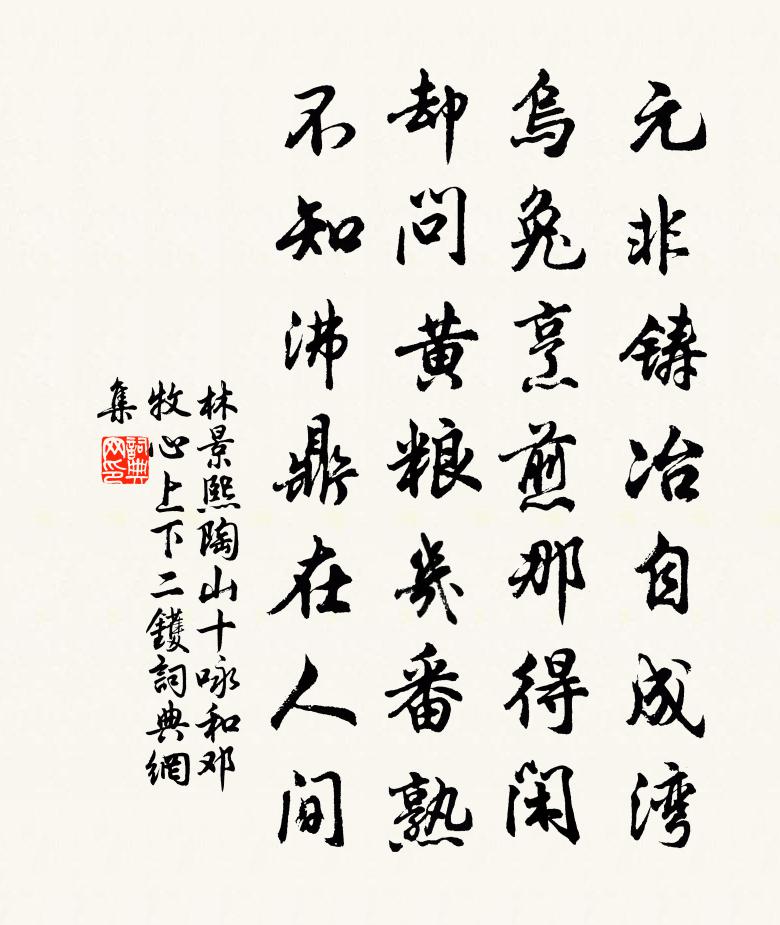 元非鋳冶自成湾
烏兔烹煎那得闲
却問黄粮幾番熟
不知沸鼎在人间
林景熙陶山十咏和邓
牧心上下二鑊詞典網
集
詞典网印